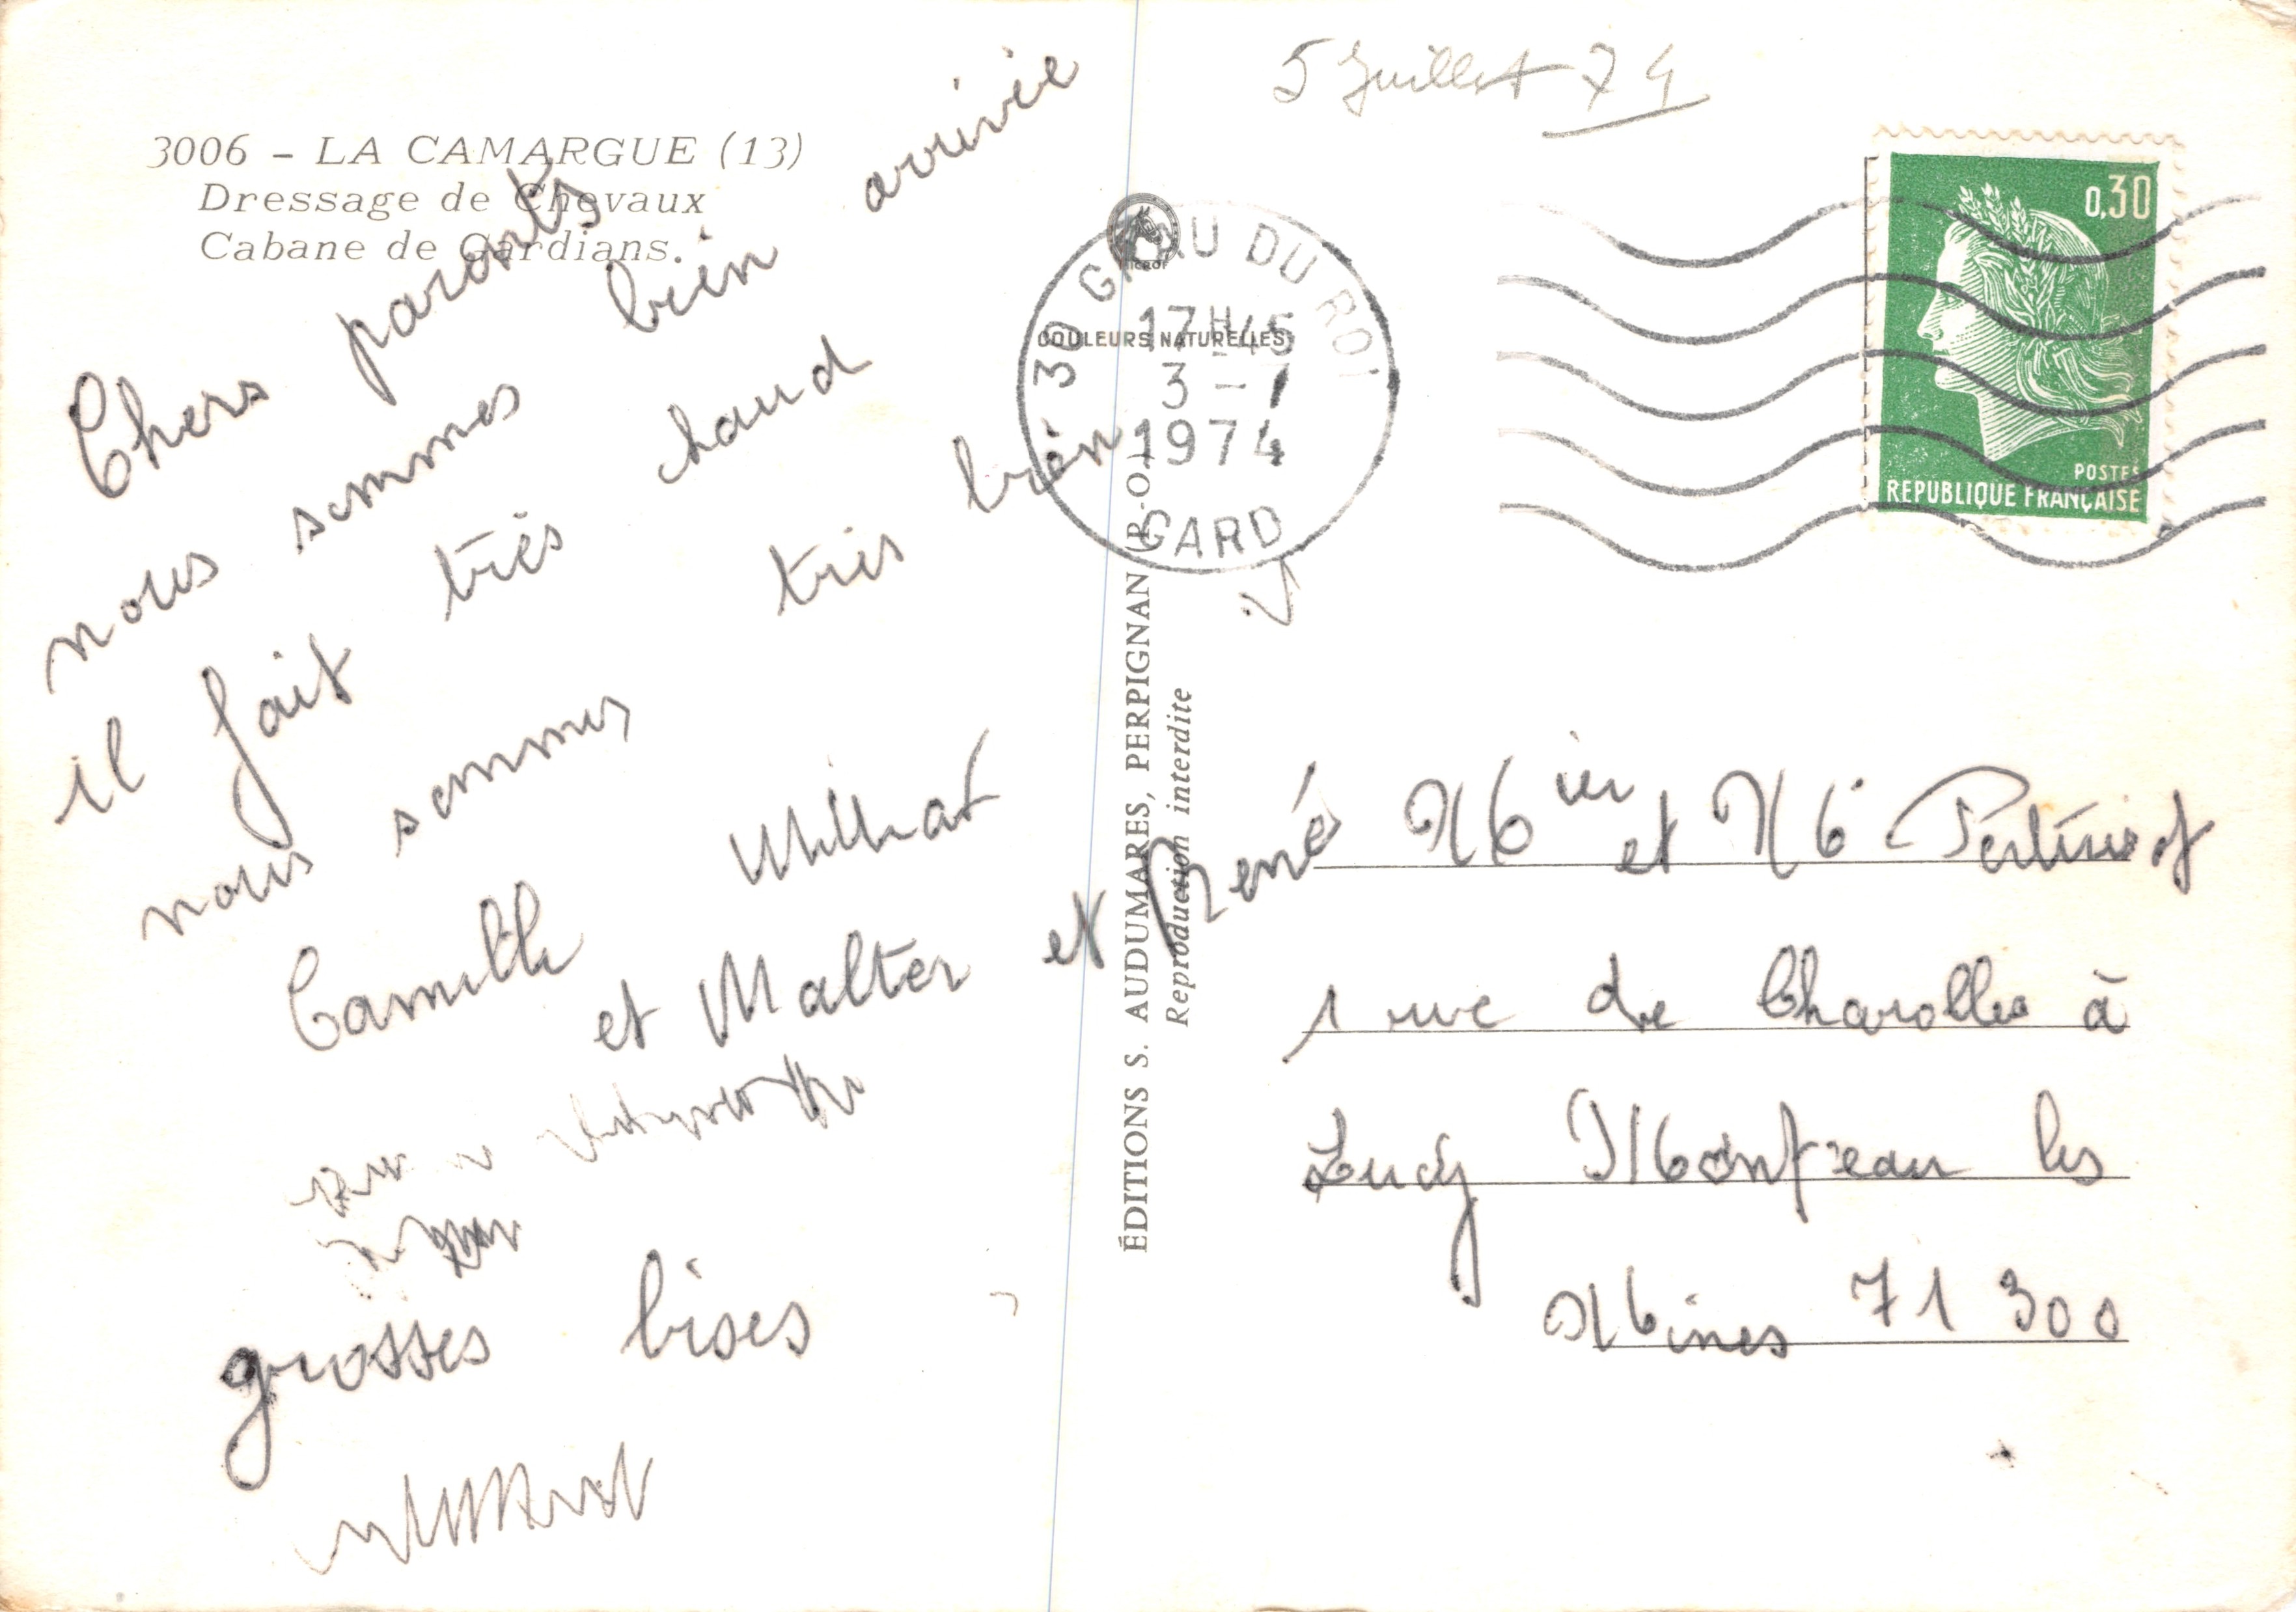 3006 - LA CAMARGUE (13)
Dressage de Chevaux
Cabane de Gardians.
Chers parents
nous sommes bien arrivée
il fait très chaud
nous sommes très bien
Camille
et Malter et René
grosses bises
5 Juillet 74
30 GRAU DU ROI
17H45
3 - 7
1974
GARD
COULEURS NATURELLES
0,30
POSTES
REPUBLIQUE FRANÇAISE
ÉDITIONS S. AUDUMARES, PERPIGNAN (P.-O.)
Reproduction interdite
Mier et Me
1 rue de Charolles à
Lucy Montceau les
Mines 71 300